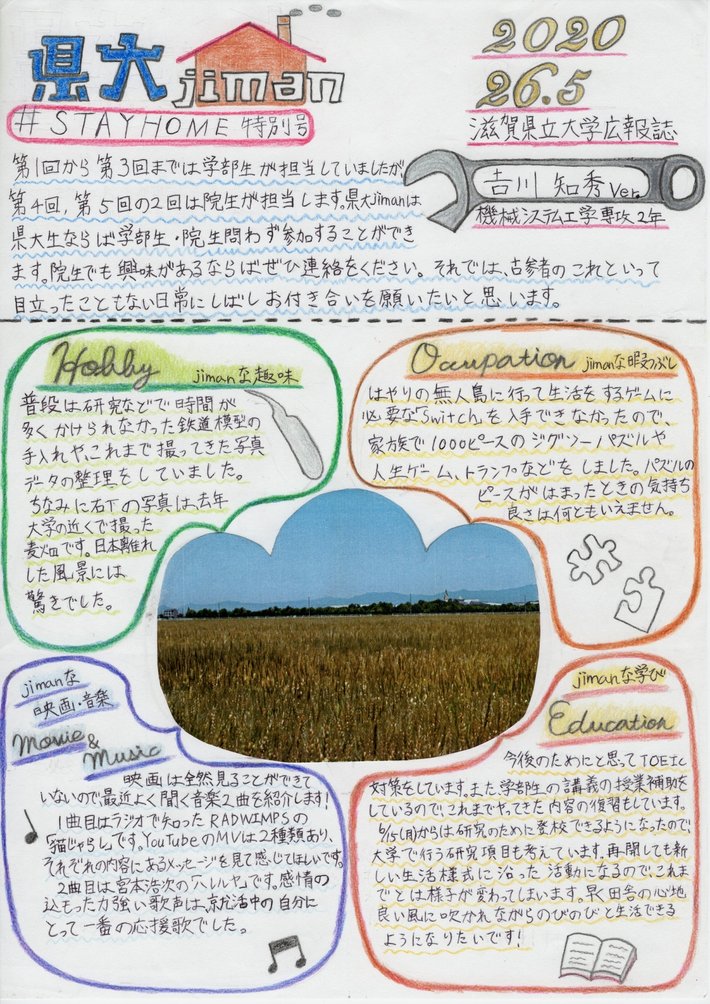 県大jiman
#STAYHOME 特別号
2020
26.5
滋賀県立大学広報誌
吉川 知秀 ver.
機械システム工学専攻2年
第1回から第3回までは学部生が担当していましたが、
第4回，第5回の2回は院生が担当します。県大jimanは
県大生ならば学部生・院生問わず参加することができ
ます。院生でも興味があるならばぜひ連絡をください。それでは、古参者のこれといって
目立ったこともない日常にしばしお付き合いを願いたいと思います。
Hobby jimanな趣味
普段は研究などで時間が
多くかけられなかった鉄道模型の
手入れや、これまで撮ってきた写真
データの整理をしていました。
ちなみに右下の写真は、去年
大学の近くで撮った
麦畑です。日本離れ
した風景には
驚きでした。
Ocupation jimanな暇つぶし
はやりの無人島に行って生活をするゲームに
必要な「Switch」を入手できなかったので、
家族で1000ピースのジグソーパズルや
人生ゲーム、トランプなどをしました。パズルの
ピースがはまったときの気持ち
良さは何ともいえません。
jimanな
映画・音楽
Movie &
Music
映画は全然見ることができて
いないので、最近よく聞く音楽2曲を紹介します!
1曲目はラジオで知ったRADWIMPSの
「猫じゃらし」です。YouTubeのMVは2種類あり、
それぞれの内容にあるメッセージを見て感じてほしいです。
2曲目は宮本浩次の「ハレルヤ」です。感情の
込もった力強い歌声は、就活中の自分に
とって一番の応援歌でした。
jimanな学び
Education
今後のためにと思ってTOEIC
対策をしています。また学部生の講義の授業補助を
しているので、これまでやってきた内容の復習もしています。
6/15(月)からは研究のために登校できるようになったので、
大学で行う研究項目も考えています。再開しても新
しい生活様式に沿った活動になるので、これま
でとは様子が変わってしまいます。早く田舎の心地
良い風に吹かれながらのびのびと生活できる
ようになりたいです!